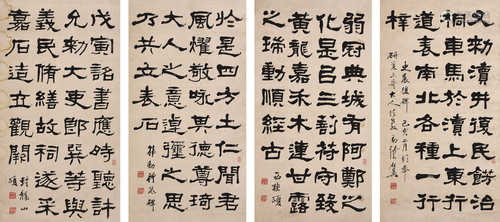 又勅瀆井復民餝治
桐車馬於瀆上東行
道表南北各種一行
梓
史晨後碑
弱冠典城有阿鄭之
化是以三剖符守致
黃龍嘉禾木連甘露
之瑞動順經古
西狹頌
於是四方土仁聞君
風燿敬咏其德尊琦
大人之意逴彌之思
乃共立表石
韓勑禮器碑
戊寅詔書應時聽許
允勅大吏郎巽等與
義民脩繕故祠遂采
嘉石造立觀闕
封龍山
頌